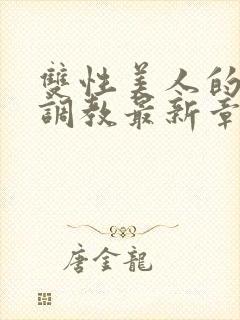 雙性美人的
調教最新章
唐金龍